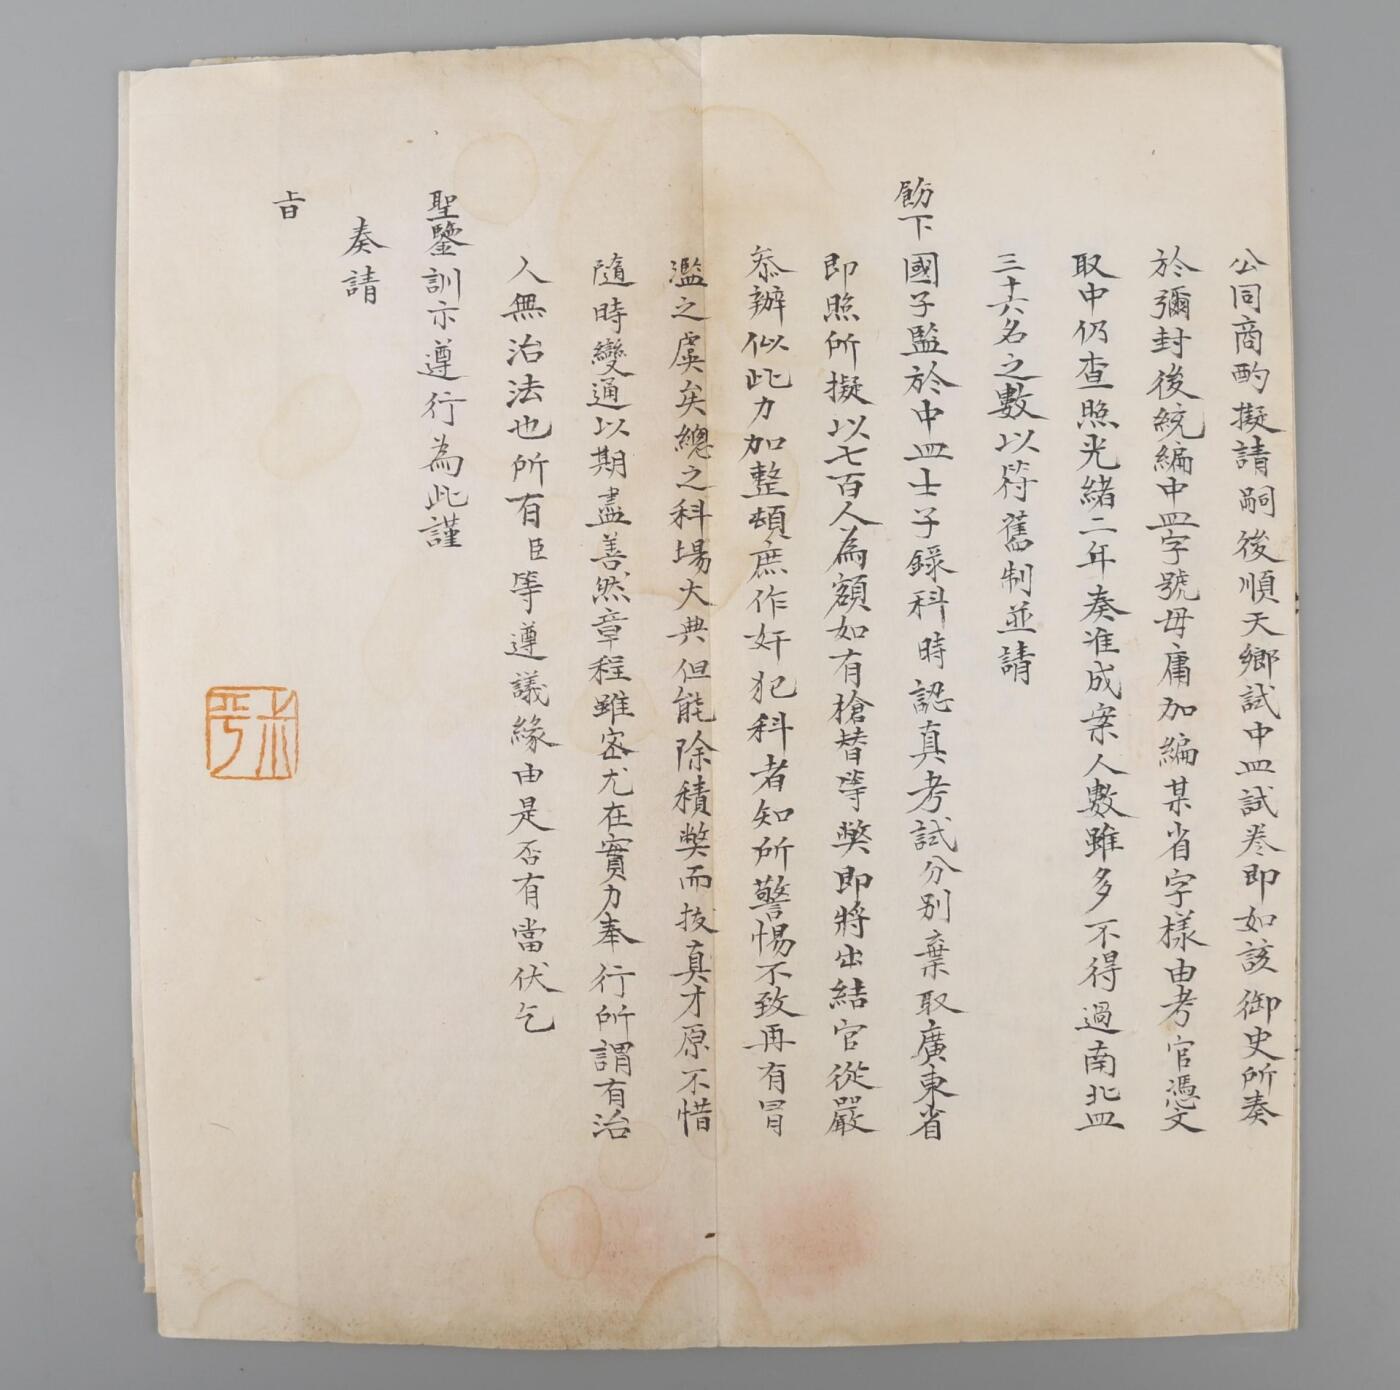 公同商酌擬請嗣後順天鄉試中皿試卷即如該御史所奏
於彌封後統編中皿字號毋庸加編某省字樣由考官憑文
取中仍查照光緒二年奏准成案人數雖多不得過南北皿
三十六名之數以符舊制並請
飭下國子監於中皿士子錄科時認真考試分別棄取廣東省
即照所擬以七百人為額如有槍替等獘即將出結官從嚴
叅辦似此力加整頓庶作奸犯科者知所警惕不致再有冒
濫之虞矣總之科場大典但能除積獘而拔真才原不惜
隨時變通以期盡善然章程雖密尤在實力奉行所謂有治
人無治法也所有臣等遵議緣由是否有當伏乞
聖鑒訓示遵行為此謹
奏請
旨